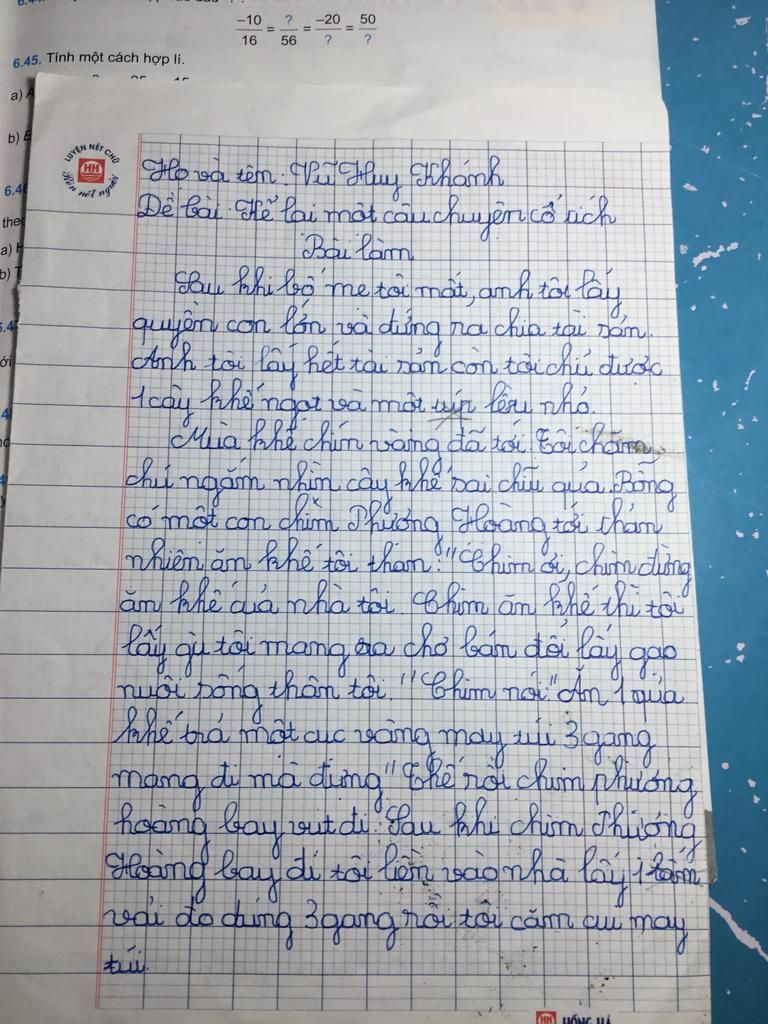 -10/16 = ?/56 = -20/? = 50/?
6.45. Tính một cách hợp lí.
a) A
b) B
LUYỆN NÉT CHỮ
HH
Rèn nết người
Họ và tên: Vũ Huy Khánh
Đề bài: Kể lại một câu chuyện cổ tích
Bài làm
Sau khi bố mẹ tôi mất, anh tôi lấy
quyền con lớn và đứng ra chia tài sản.
Anh tôi lấy hết tài sản còn tôi chỉ được
1 cây khế ngọt và một lều nhỏ.
Mùa khế chín vàng đã tới. Tôi chăm
chú ngắm nhìn cây khế sai chĩu quả. Bỗng
có một con chim Phượng Hoàng tới thản
nhiên ăn khế tôi than: "Chim ơi, chim đừng
ăn khế của nhà tôi. Chim ăn khế thì tôi
lấy gì tôi mang ra chợ bán đổi lấy gạo
nuôi sống thân tôi. "Chim nói" Ăn 1 quả
khế trả một cục vàng may túi 3 gang
mang đi mà đựng" Thế rồi chim phượng
hoàng bay vụt đi. Sau khi chim Phượng
Hoàng bay đi tôi liền vào nhà lấy 1 tấm
vải đo đúng 3 gang rồi tôi cặm cụi may
túi.
HH HỒNG HÀ